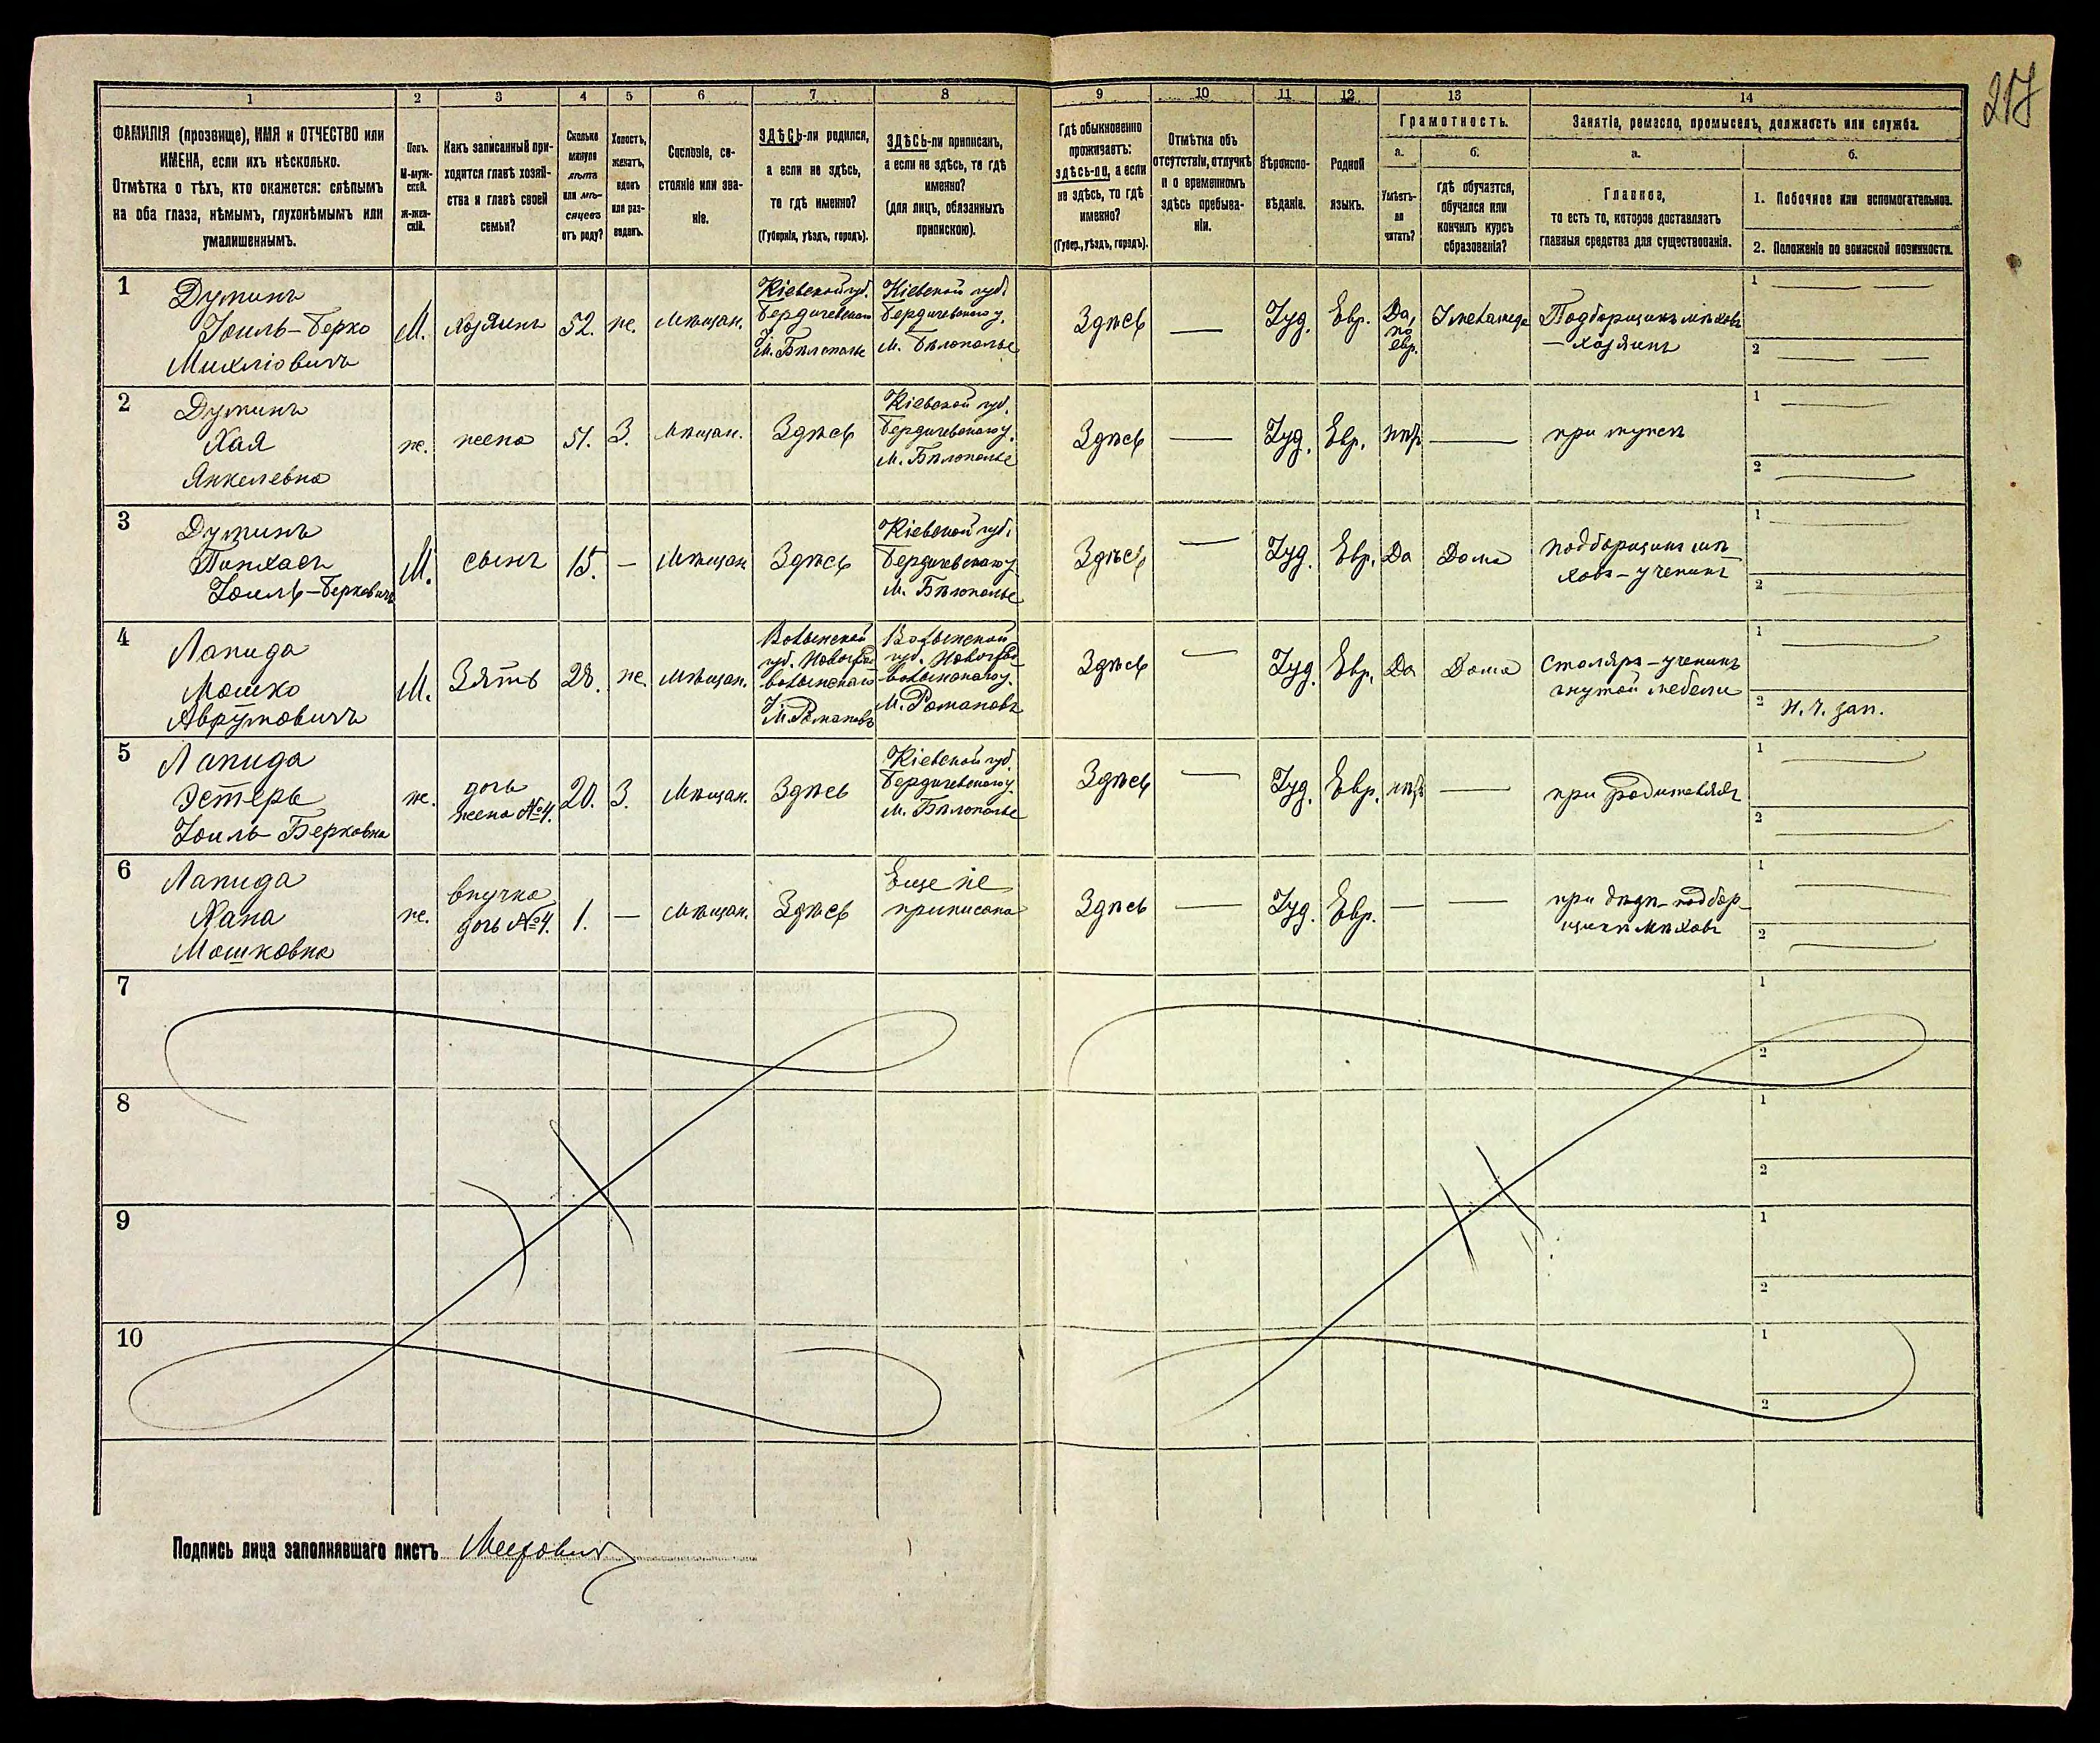 217
1 2 3 4 5 6 7 8 9 10 11 12 13 14
ФАМИЛІЯ (прозвище), ИМЯ и ОТЧЕСТВО или
ИМЕНА, если ихъ нѣсколько.
Отмѣтка о тѣхъ, кто окажется: слѣпымъ
на оба глаза, нѣмымъ, глухонѣмымъ или
умалишеннымъ.
Полъ.
М-муж-
ской.
Ж-жен-
скій.
Какъ записанный при-
ходится главѣ хозяй-
ства и главѣ своей
семьи?
Сколько
минуло
лѣтъ
или мѣ-
сяцевъ
отъ роду?
Холостъ,
женатъ,
вдовъ
или раз-
веденъ.
Сословіе, со-
стояніе или зва-
ніе.
ЗДѢСЬ-ли родился,
а если не здѣсь,
то гдѣ именно?
(Губернія, уѣздъ, городъ).
ЗДѢСЬ-ли приписанъ,
а если не здѣсь, то гдѣ
именно?
(для лицъ, обязанныхъ
припискою).
Гдѣ обыкновенно
проживаетъ:
здѣсь-ли, а если
не здѣсь, то гдѣ
именно?
(Губер., уѣздъ, городъ).
Отмѣтка объ
отсутствіи, отлучкѣ
и о временномъ
здѣсь пребыва-
ніи.
Вѣроиспо-
вѣданіе.
Родной
языкъ.
Грамотность.
а.
Умѣетъ-
ли
читать?
б.
Гдѣ обучается,
обучался или
кончилъ курсъ
образованія?
Занятіе, ремесло, промыселъ, должность или служба.
а.
Главное,
то есть то, которое доставляетъ
главныя средства для существованія.
б.
1. Побочное или вспомогательное.
2. Положеніе по воинской повинности.
1
Думанъ
Іоиль-Берко
Михліовичъ
М.
хозяинъ
52.
ж.
Мѣщан.
Кіевской губ.
Бердичевскаго
у.
м. Бѣлополье
Кіевской губ.
Бердичевскаго у.
м. Бѣлополье
Здѣсь
—
Іуд.
Евр.
Да,
по
евр.
У меламеда
Подборщикъ мѣховъ
— хозяинъ
1
2
2
Думанъ
Хая
Янкелевна
ж.
жена
51.
З.
Мѣщан.
Здѣсь
Кіевской губ.
Бердичевскаго у.
м. Бѣлополье
Здѣсь
—
Іуд.
Евр.
нѣтъ
—
при мужѣ
1
2
3
Думанъ
Пинхасъ
Іоиль-Берковичъ
М.
сынъ
15.
—
Мѣщан.
Здѣсь
Кіевской губ.
Бердичевскаго у.
м. Бѣлополье
Здѣсь
—
Іуд.
Евр.
Да
Дома
подборщикъ мѣ-
ховъ - ученикъ
1
2
4
Лапида
Мошко
Аврумовичъ
М.
Зять
28.
ж.
мѣщан.
Волынской
губ. Новоград-
волынскаго
у.
м. Романовъ
Волынской
губ. Новоград-
волынскаго у.
м. Романовъ
Здѣсь
—
Іуд.
Евр.
Да
Дома
столяръ - ученикъ
гнутой мебели
1
2 Н. ч. зап.
5
Лапида
Эстеръ
Іоиль-Берковна
ж.
дочь
жена №4.
20.
З.
Мѣщан.
Здѣсь
Кіевской губ.
Бердичевскаго у.
м. Бѣлополье
Здѣсь
—
Іуд.
Евр.
нѣтъ
—
при родителяхъ
1
2
6
Лапида
Хана
Мошковна
ж.
внучка
дочь №4.
1.
—
Мѣщан.
Здѣсь
Еще не
приписана
Здѣсь
—
Іуд.
Евр.
—
—
при дѣдѣ - подбор-
щикѣ мѣховъ
1
2
7
1
2
8
1
2
9
1
2
10
1
2
Подпись лица заполнявшаго листъ